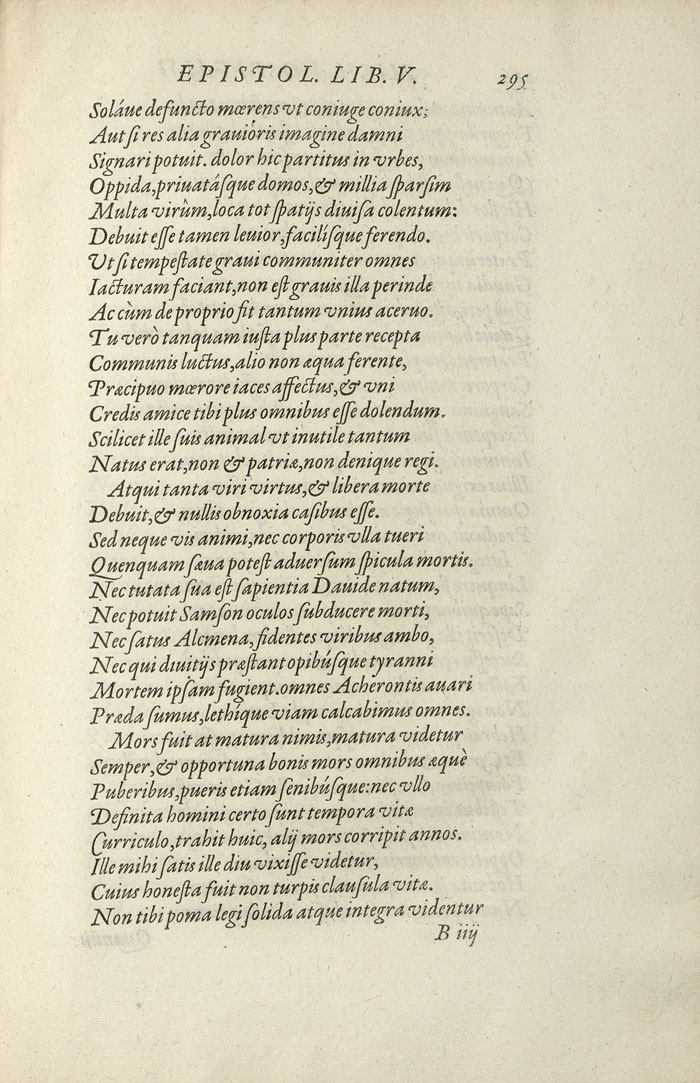 EPISTOL. LIB. V. 295
Soláue defuncto mœrens vt coniuge coniux;
Aut si res alia grauióris imagine damni
Signari potuit. dolor hic partitus in vrbes,
Oppida, priuatásque domos, & millia sparsim
Multa virûm, loca tot spatijs diuisa colentum:
Debuit esse tamen leuior, facilísque ferendo.
Vt si tempestate graui communiter omnes
Iacturam faciant, non est grauis illa perinde
Ac cùm de proprio fit tantum vnius aceruo.
Tu verò tanquam iusta plus parte recepta
Communis luctus, alio non æqua ferente,
Præcipuo mœrore iaces affectus, & vni
Credis amice tibi plus omnibus esse dolendum.
Scilicet ille suis animal vt inutile tantum
Natus erat, non & patriæ, non denique regi.
Atqui tanta viri virtus, & libera morte
Debuit, & nullis obnoxia casibus esse.
Sed neque vis animi, nec corporis vlla tueri
Quenquam sæua potest aduersum spicula mortis.
Nec tutata sua est sapientia Dauide natum,
Nec potuit Samson oculos subducere morti,
Nec satus Alcmena, fidentes viribus ambo,
Nec qui diuitijs præstant opibúsque tyranni
Mortem ipsam fugient. omnes Acherontis auari
Præda sumus, lethíque viam calcabimus omnes.
Mors fuit at matura nimis, matura videtur
Semper, & opportuna bonis mors omnibus æquè
Puberibus, pueris etiam senibúsque: nec vllo
Definita homini certo sunt tempora vitæ
Curriculo, trahit huic, alij mors corripit annos.
Ille mihi satis ille diu vixisse videtur,
Cuius honesta fuit non turpis clausula vitæ.
Non tibi poma legi solida atque integra videntur
B iiij